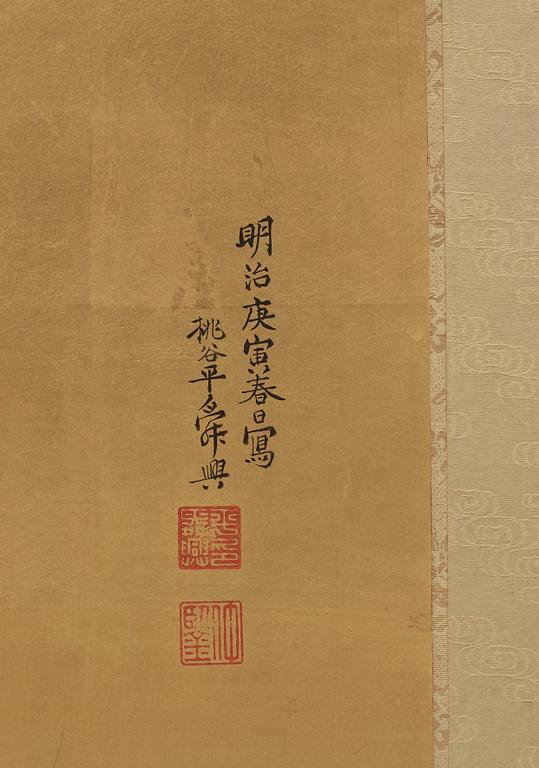 明治庚寅春日寫
桃谷平
興